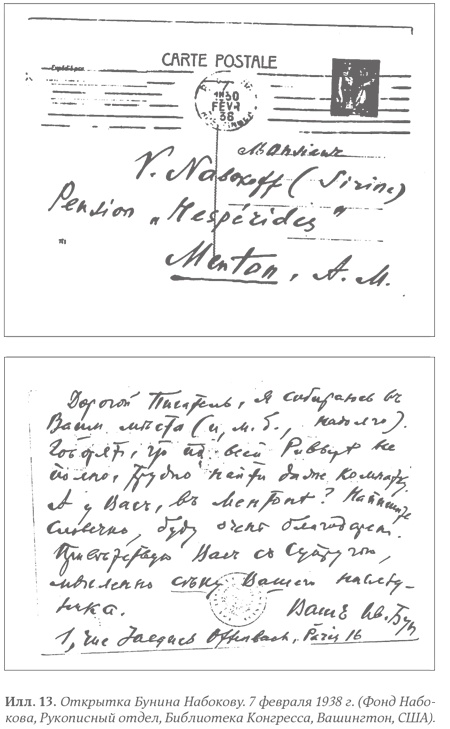 CARTE POSTALE
1930
FÉVR
38
Monsieur
V. Nabokoff (Sirine)
Pension „Hespérides"
Menton, A. M.
Дорогой Писатель, я собираюсь въ
Ваши мѣста (и, м. б., надолго).
Говорятъ, что на всей Ривьерѣ не
полно, трудно найти даже комнату.
А у Васъ, въ Ментонѣ? Напишите
словечко, буду очень благодаренъ.
Привѣтствую Васъ съ Супругой,
мысленно Вашего наслѣд-
ника.
Вашъ Ив. Бун
1, rue Jacques Offenbach, Paris 16
Илл. 13. Открытка Бунина Набокову. 7 февраля 1938 г. (Фонд Набо-
кова, Рукописный отдел, Библиотека Конгресса, Вашингтон, США).